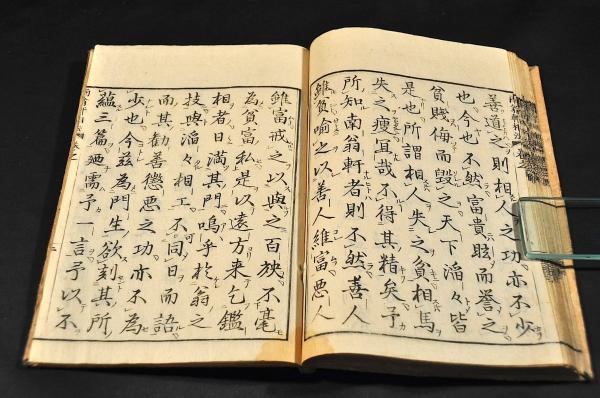 善道之則相人之功亦不少
也今也不然富貴眩而譽之
貧賤侮而毀之天下滔々皆
是也所謂相人失之貧相馬
失之瘦冝哉不得其精矣予
所知南翁軒者則不然善人
雖貧喻之以善人雖富悪人
雖富戒之以與之百殃不毫
為貧富私是以遠方来乞鑑
相者日満其門嗚乎於翁之
技與滔々相工不同日而語
而其勸善懲悪之功亦不為
少也今茲為門生欲刻其所
蘊三篇廼需予一言予以不